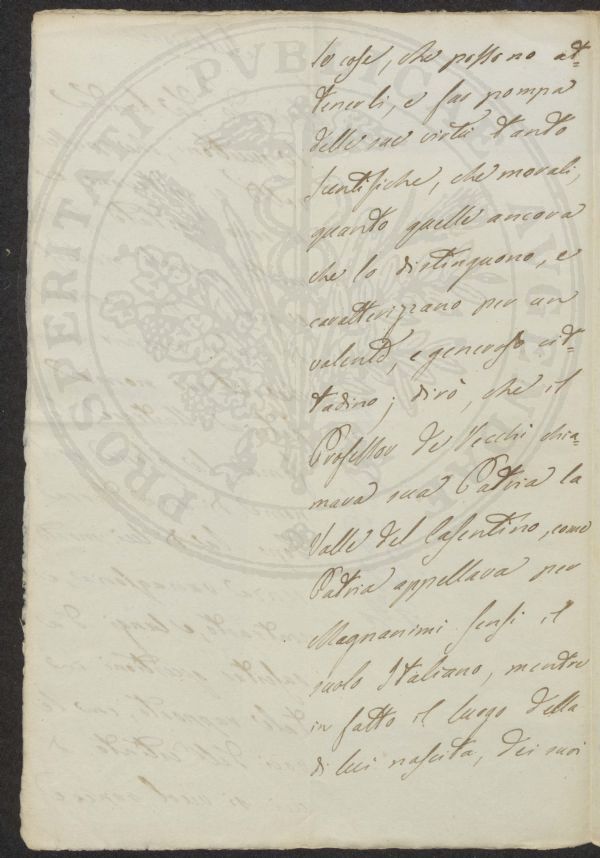 PROSPERITATI PUBLICAE AUGENDAE
lo cose, che possono at=
tenerli, e far pompa
delle sue virtù tanto
scentifiche, che morali,
quanto quelle ancora
che lo distinguono, e
caratterizzano per un
valente, e generoso cit=
tadino; dirò, che il
Professor De Vecchi chia=
mava sua Patria la
Valle del Casentino, come
Patria appellava per
Magnanimi sensi il
suolo Italiano, mentre
in fatto il luogo della
di lui nascita, dei suoi